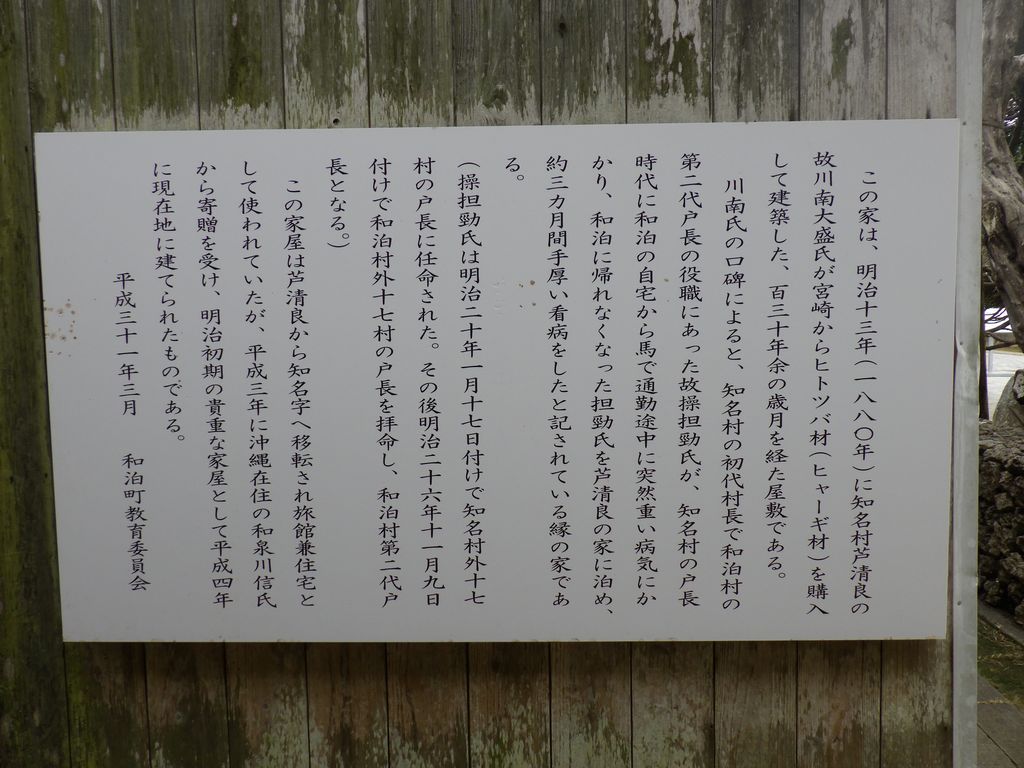 この家は、明治十三年(一八八〇年)に知名村芦清良の
故川南大盛氏が宮崎からヒトツバ材(ヒャーギ材)を購入
して建築した、百三十年余の歳月を経た屋敷である。
川南氏の口碑によると、知名村の初代村長で和泊村の
第二代戸長の役職にあった故操担勁氏が、知名村の戸長
時代に和泊の自宅から馬で通勤途中に突然重い病気にか
かり、和泊に帰れなくなった担勁氏を芦清良の家に泊め、
約三カ月間手厚い看病をしたと記されている縁の家であ
る。
(操担勁氏は明治二十年一月十七日付けで知名村外十七
村の戸長に任命された。その後明治二十六年十一月九日
付けで和泊村外十七村の戸長を拝命し、和泊村第二代戸
長となる。)
この家屋は芦清良から知名字へ移転され旅館兼住宅と
して使われていたが、平成三年に沖縄在住の和泉川信氏
から寄贈を受け、明治初期の貴重な家屋として平成四年
に現在地に建てられたものである。
平成三十一年三月 和泊町教育委員会